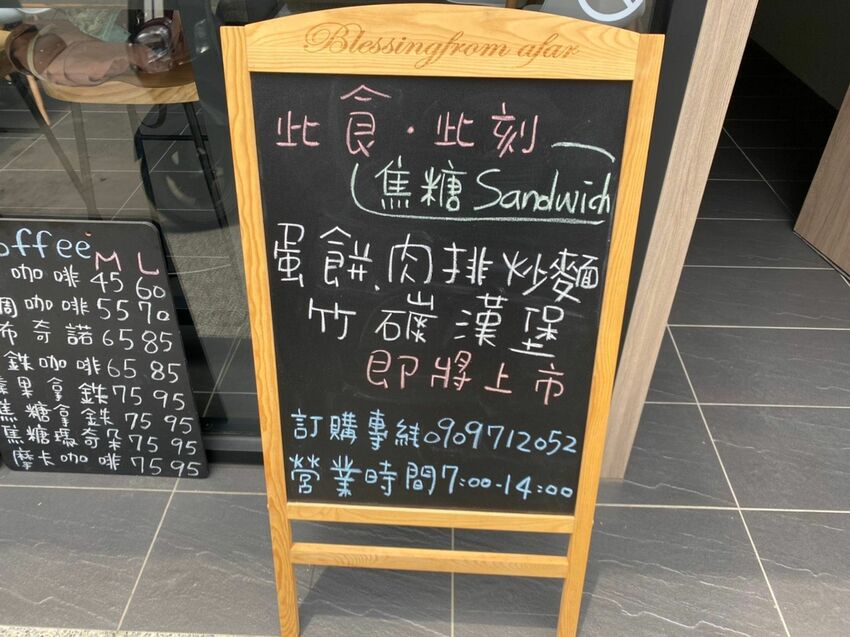 Blessingfrom afar
此食·此刻
焦糖 Sandwich
蛋餅、肉排炒麵
竹碳漢堡
即將上市
訂購專線0909712052
營業時間7:00-14:00
offee M L
咖啡 45 60
咖啡 55 70
布奇諾 65 85
鉄咖啡 65 85
果拿鉄 75 95
焦糖拿鉄 75 95
焦糖瑪奇朵 75 95
摩卡咖啡 75 95